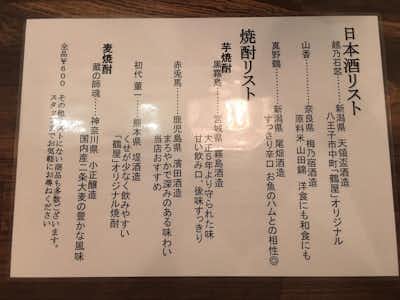 日本酒リスト
越乃石窓……新潟県 天領盃酒造
八王子市中町、「鶴屋」オリジナル
山香……奈良県 梅乃宿酒造
原料米 山田錦 洋食にも和食にも
真野鶴……新潟県 尾畑酒造
すっきり辛口 お魚のハムとの相性◎
焼酎リスト
芋焼酎
黒霧島……宮城県 霧島酒造
大正5年より守られた味
甘い飲み口、後味すっきり
赤兎馬……鹿児島県 濱田酒造
まろやかで深みのある味わい
当店おすすめ
初代 董一……熊本県 堤酒造
くさみが少なく飲みやすい
「鶴屋」オリジナル焼酎
麦焼酎
蔵の師魂……神奈川県 小正醸造
国内産二条大麦の豊かな風味
全品¥600 その他リストにない商品も多数ございます。
スタッフまでお気軽にお尋ねください